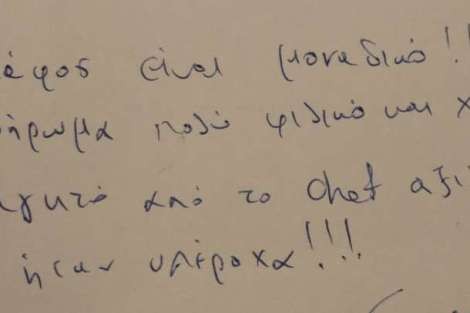 άφος είναι μοναδικό!!
ήρωμα πολύ φιλικό και χ
αγητό από το chef αξι
ήταν υπέροχα!!!